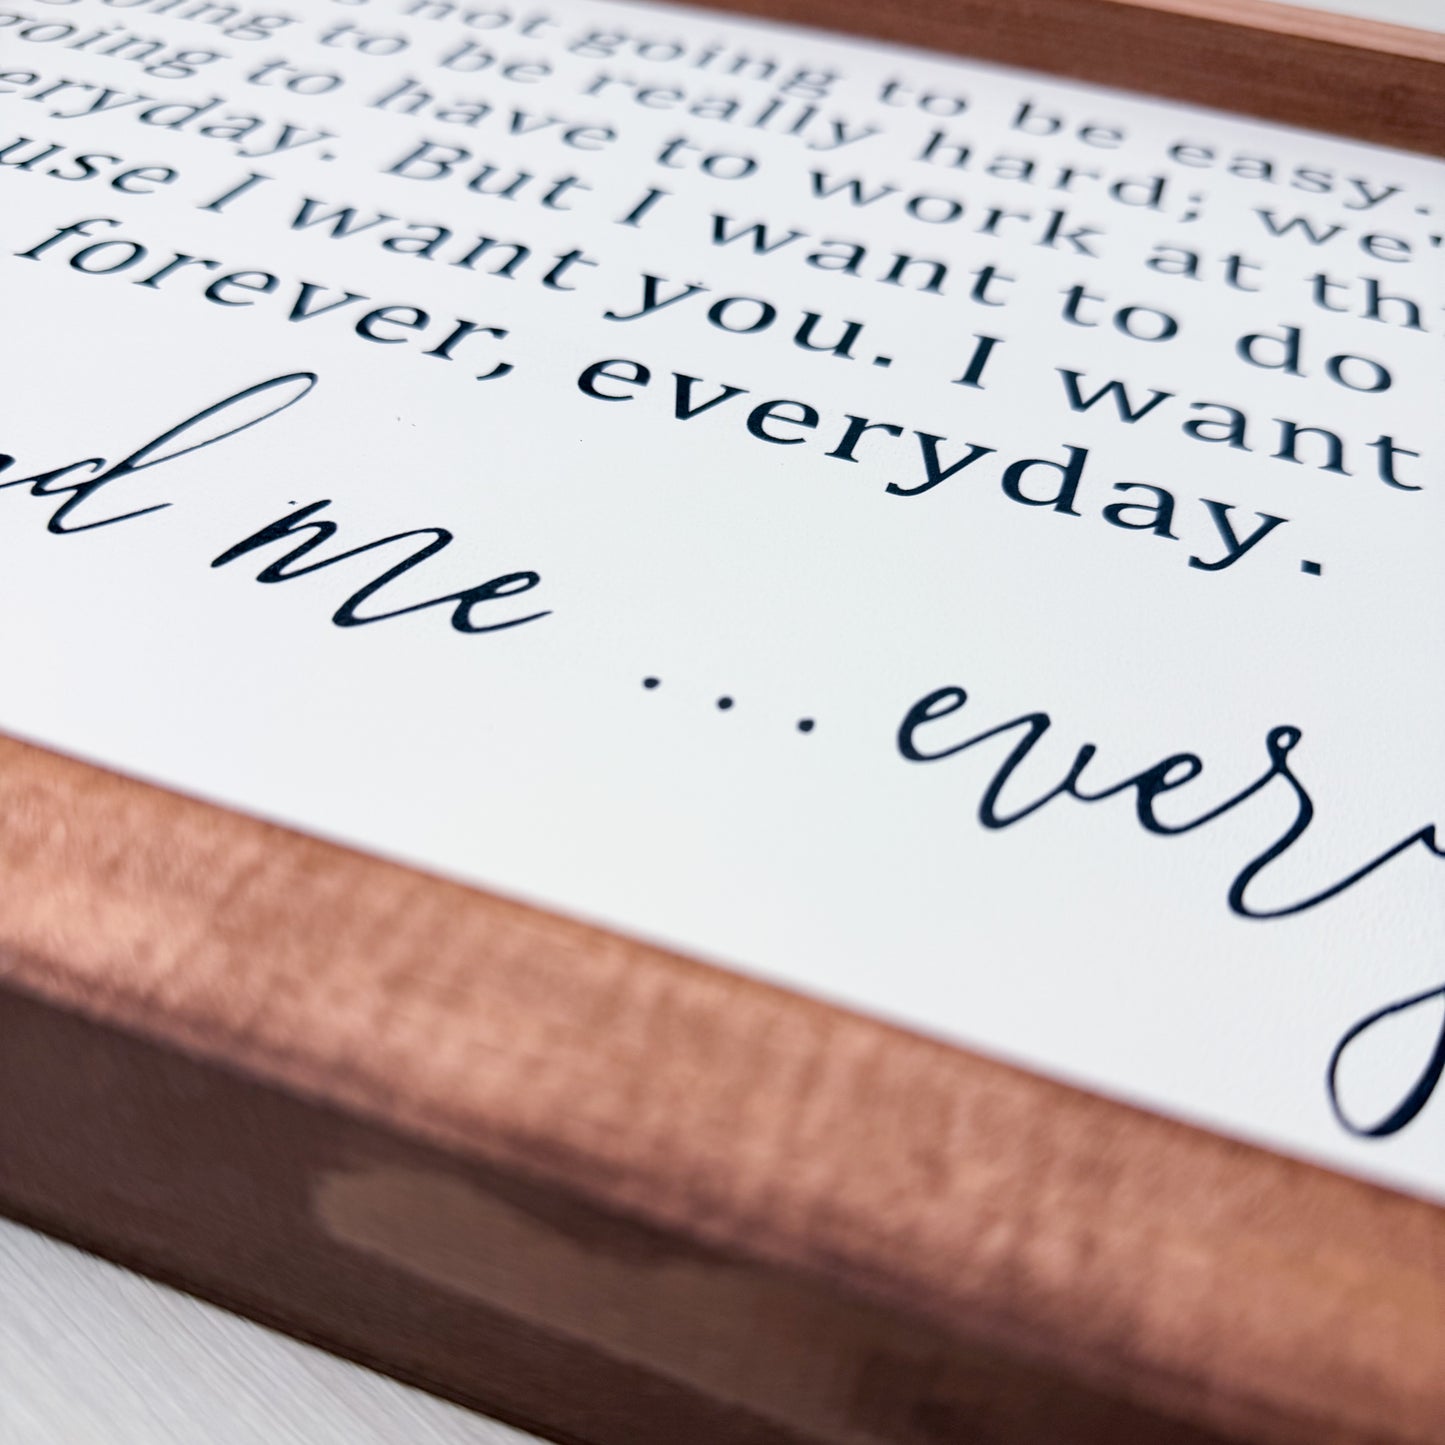 not going to be easy.
going to be really hard; we'
going to have to work at th
eryday. But I want to do
use I want you. I want
forever, everyday.
d me ... every